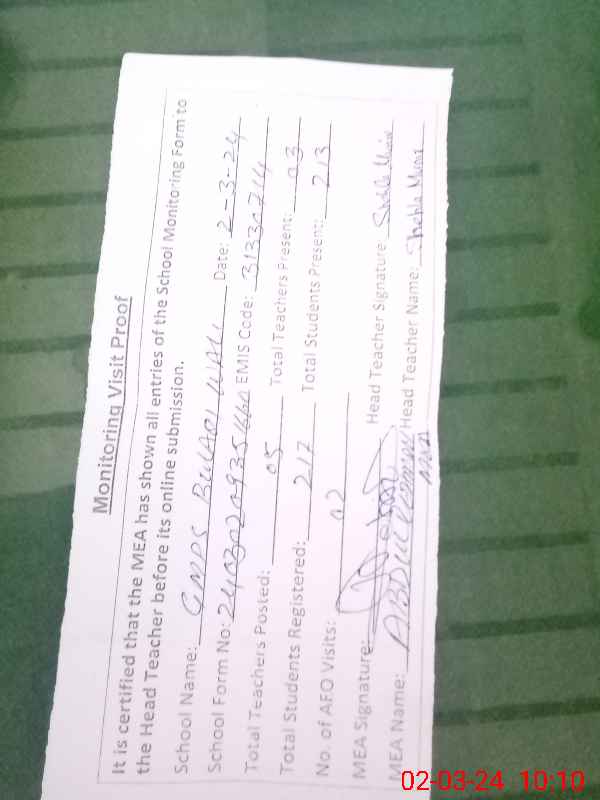 Monitoring Visit Proof
It is certified that the MEA has shown all entries of the School Monitoring Form to
the Head Teacher before its online submission.
School Name: GMPS Date: 2-3-24
School Form No: EMIS Code:
Total Teachers Posted: 05 Total Teachers Present: 03
Total Students Registered: 217 Total Students Present: 213
No. of AEO Visits: 02
MEA Signature: Head Teacher Signature:
MEA Name: Head Teacher Name: Shehla
02-03-24 10:10